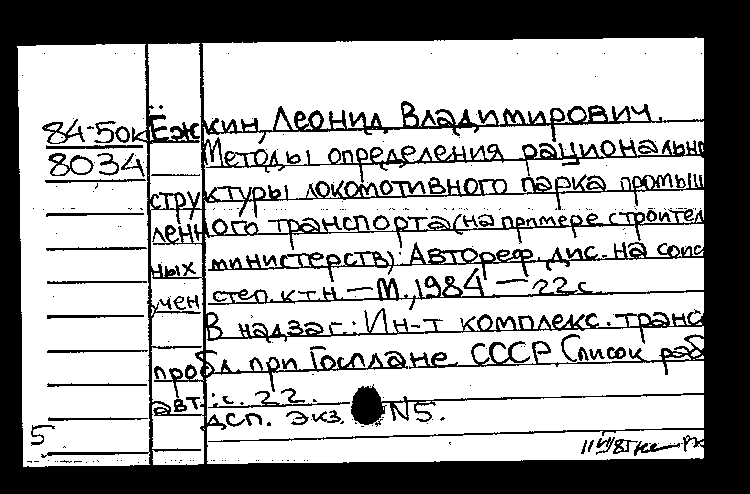 84-50к Ёжкин, Леонид Владимирович.
8034 Методы определения рационально
структуры локомотивного парка промыш
ленного транспорта (на примере строител
ных министерств): Автореф. дис. на соис
учен степ. к.т.н. — М., 1984. — 22 с.
В надзаг.: Ин-т комплекс. транс
пробл. при Госплане СССР. Список раб
авт.: с. 22.
ДСП. Экз. N5.
5